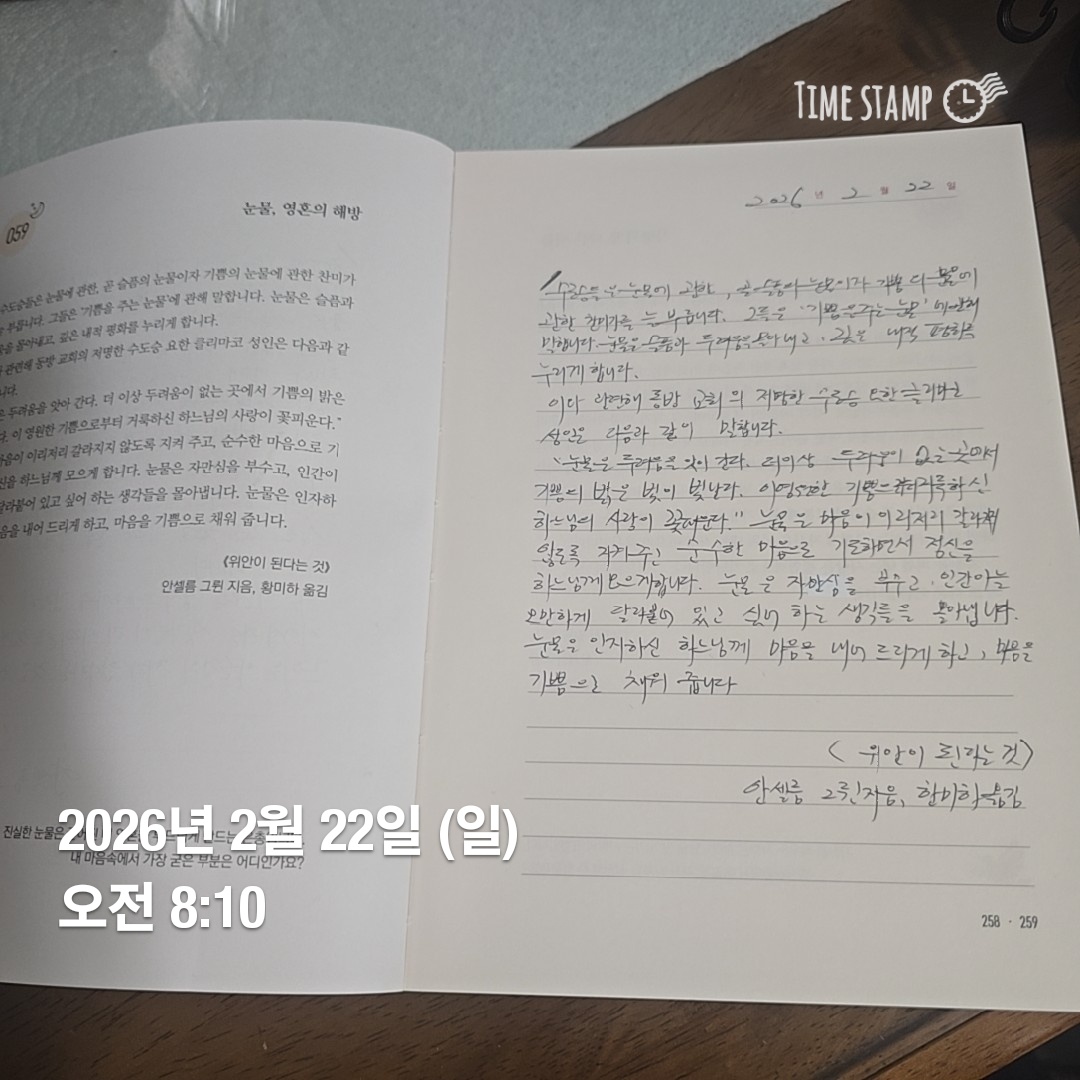 TIME STAMP
059
눈물, 영혼의 해방
수도승들은 눈물에 관한, 곧 슬픔의 눈물이자 기쁨의 눈물에 관한 찬미가
부릅니다. 그들은 '기쁨을 주는 눈물'에 관해 말합니다. 눈물은 슬픔과
몰아내고, 깊은 내적 평화를 누리게 합니다.
관련해 동방 교회의 저명한 수도승 요한 클리마코 성인은 다음과 같
니다.
은 두려움을 앗아 간다. 더 이상 두려움이 없는 곳에서 기쁨의 밝은
다. 이 영원한 기쁨으로부터 거룩하신 하느님의 사랑이 꽃피운다."
마음이 이리저리 갈라지지 않도록 지켜 주고, 순수한 마음으로 기
신을 하느님께 모으게 합니다. 눈물은 자만심을 부수고, 인간이
달라붙어 있고 싶어 하는 생각들을 몰아냅니다. 눈물은 인자하
음을 내어 드리게 하고, 마음을 기쁨으로 채워 줍니다.
《위안이 된다는 것》
안셀름 그륀 지음, 황미하 옮김
진실한 눈물은
내 마음속에서 가장 굳은 부분은 어디인가요?
2026년 2월 22일
수도승들은 눈물에 관한, 곧 슬픔의 눈물이자 기쁨의 눈물에
관한 찬미가를 부릅니다. 그들은 '기쁨을 주는 눈물'에 관해
말합니다. 눈물은 슬픔과 두려움을 몰아내고, 깊은 내적 평화를
누리게 합니다.
이와 관련해 동방 교회의 저명한 수도승 요한 클리마코
성인은 다음과 같이 말합니다.
"눈물은 두려움을 앗아 간다. 더이상 두려움이 없는 곳에서
기쁨의 밝은 빛이 빛난다. 이 영원한 기쁨으로부터 거룩하신
하느님의 사랑이 꽃피운다." 눈물은 마음이 이리저리 갈라지지
않도록 지켜주고 순수한 마음으로 기도하면서 정신을
하느님께 모으게 합니다. 눈물은 자만심을 부수고, 인간이
달라붙어 있고 싶어 하는 생각들을 몰아냅니다.
눈물은 인자하신 하느님께 마음을 내어 드리게 하고, 마음을
기쁨으로 채워 줍니다
〈위안이 된다는 것〉
안셀름 그륀 지음, 황미하 옮김
258 · 259
2026년 2월 22일 (일)
오전 8:10